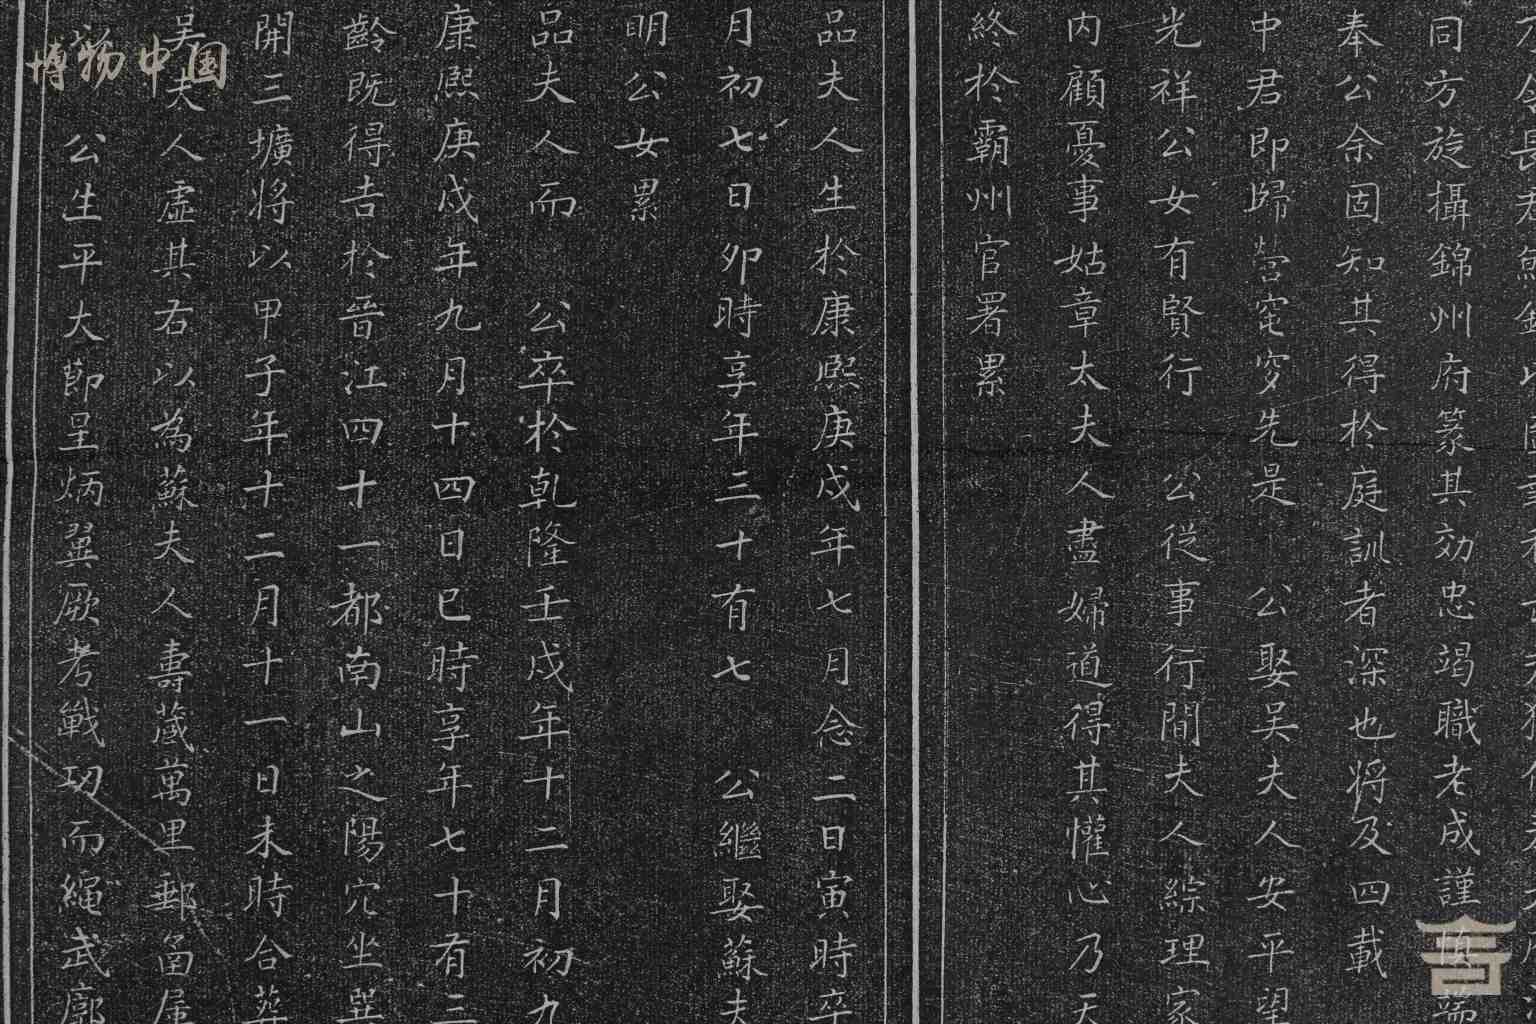 同方旋攝錦州府篆其効忠竭職老成謹慎端
奉公余固知其得於庭訓者深也將及四載
中君即歸營窀穸先是 公娶吳夫人安平望
光祥公女有賢行 公從事行間夫人綜理家
內顧憂事姑章太夫人盡婦道得其懽心乃天
終於霸州官署累
品夫人生於康熙庚戌年七月念二日寅時卒
月初七日卯時享年三十有七 公繼娶蘇夫
明公女累
品夫人而 公卒於乾隆壬戌年十二月初九
康熙庚戌年九月十四日巳時享年七十有三
齡既得吉於晉江四十一都南山之陽穴坐巽
開三壙將以甲子年十二月十一日未時合葬
吳夫人虛其右以為蘇夫人壽藏萬里郵函屬
公生平大節呈炳翼厥考戰功而繩武廓
博物中国